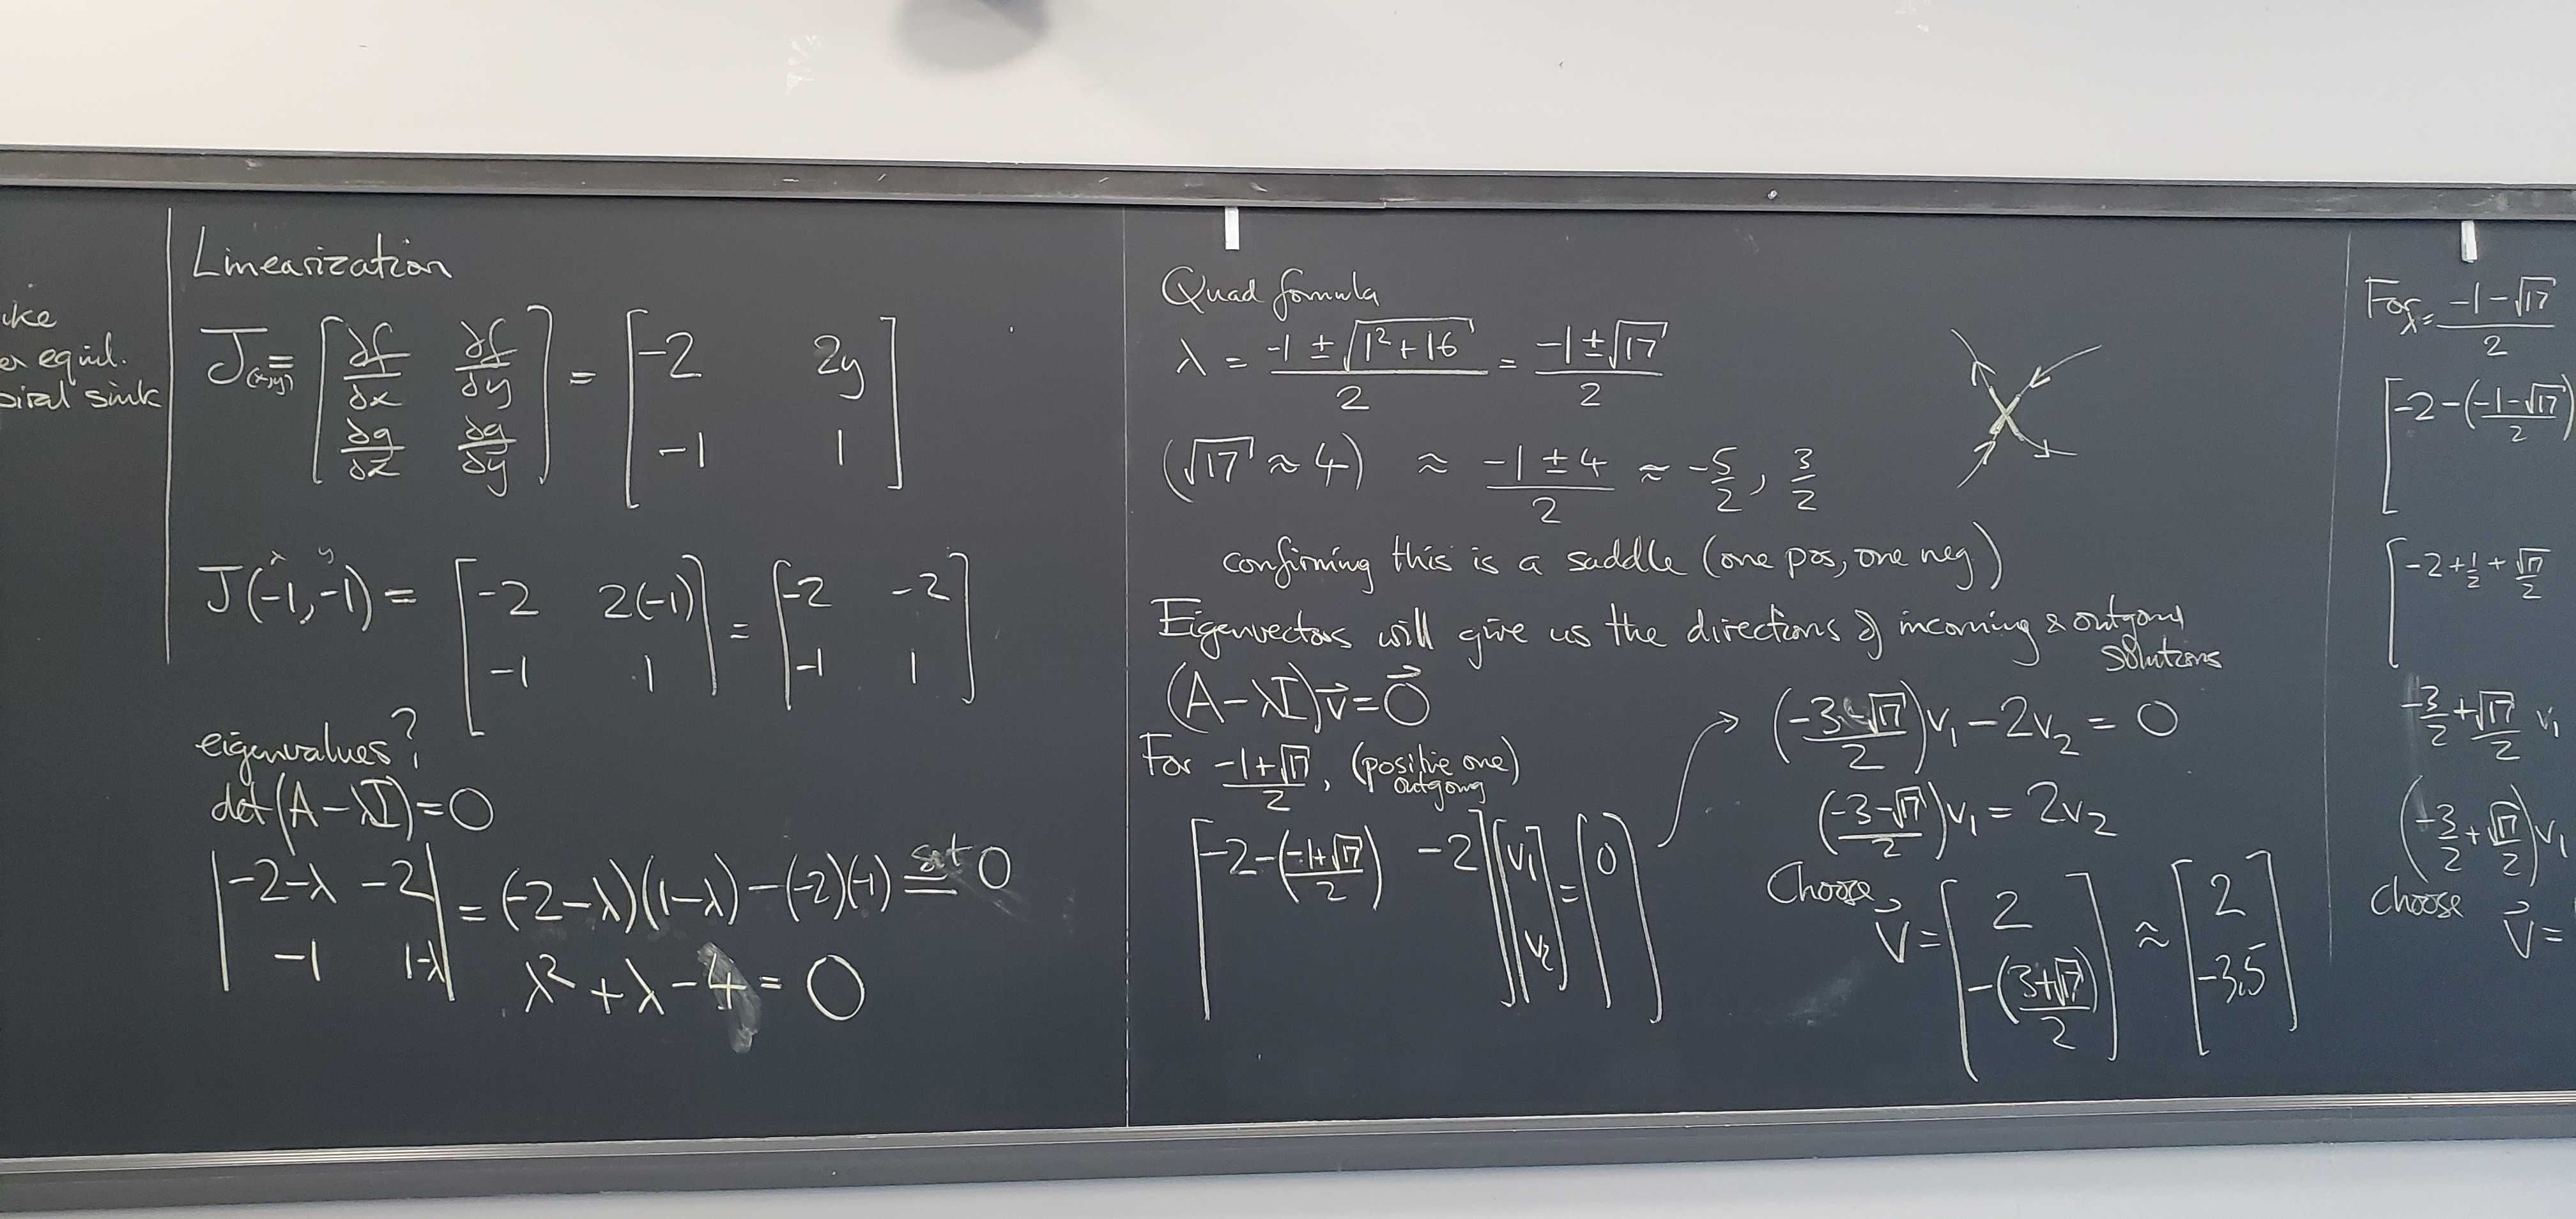 er equil.
sink
Linearization
J(x,y) = [∂f/∂x ∂f/∂y; ∂g/∂x ∂g/∂y] = [-2 2y; -1 1]
x y
J(-1,-1) = [-2 2(-1); -1 1] = [-2 -2; -1 1]
eigenvalues?
det(A-λI)=0
|-2-λ -2; -1 1-λ| = (-2-λ)(1-λ)-(-2)(-1) set= 0
λ²+λ-4=0
Quad formula
λ = (-1±√(1²+16))/2 = (-1±√17)/2
(√17≈4) ≈ (-1±4)/2 ≈ -5/2, 3/2
confirming this is a saddle (one pos, one neg)
Eigenvectors will give us the directions of incoming & outgoing
solutions
(A-λI)v⃗=0⃗
For (-1+√17)/2, (positive one)
outgoing
[-2-((-1+√17)/2) -2][v₁; v₂]=[0]
((-3-√17)/2)v₁-2v₂=0
((-3-√17)/2)v₁=2v₂
Choose
v⃗=[2; -(3+√17)/2] ≈ [2; -3.5]
For λ= (-1-√17)/2
[-2-((-1-√17)/2)
[-2+1/2+√17/2
-3/2+√17/2 v₁
(-3/2+√17/2)v₁
Choose
v⃗=